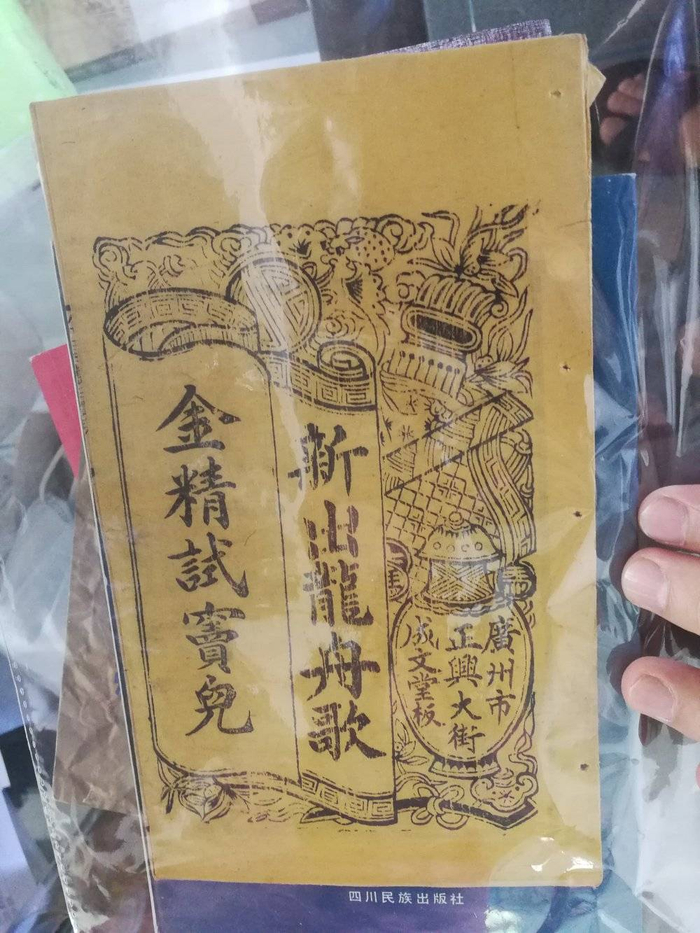 廣州市
正興大街
成文堂板
新出龍舟歌
金精試竇皃
四川民族出版社